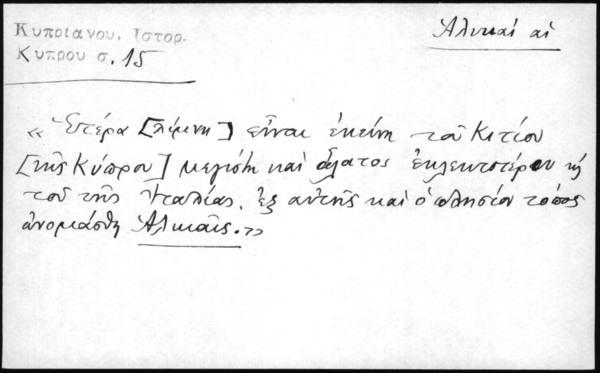 Κυπριανου, Ιστορ.
Κυπρου σ. 15
Ἁλυκαί αἱ
«Ἑτέρα [λίμνη] εἶναι ἐκείνη τοῦ Κιτίου
[τῆς Κύπρου] μεγίστη καὶ ἅλατος ἐκλεκτοτέρου
τοῦ τῆς Ἰταλίας. ἐξ αὐτῆς καὶ ὁ πλησίον τόπος
ὠνομάσθη Ἁλυκαῖς.»